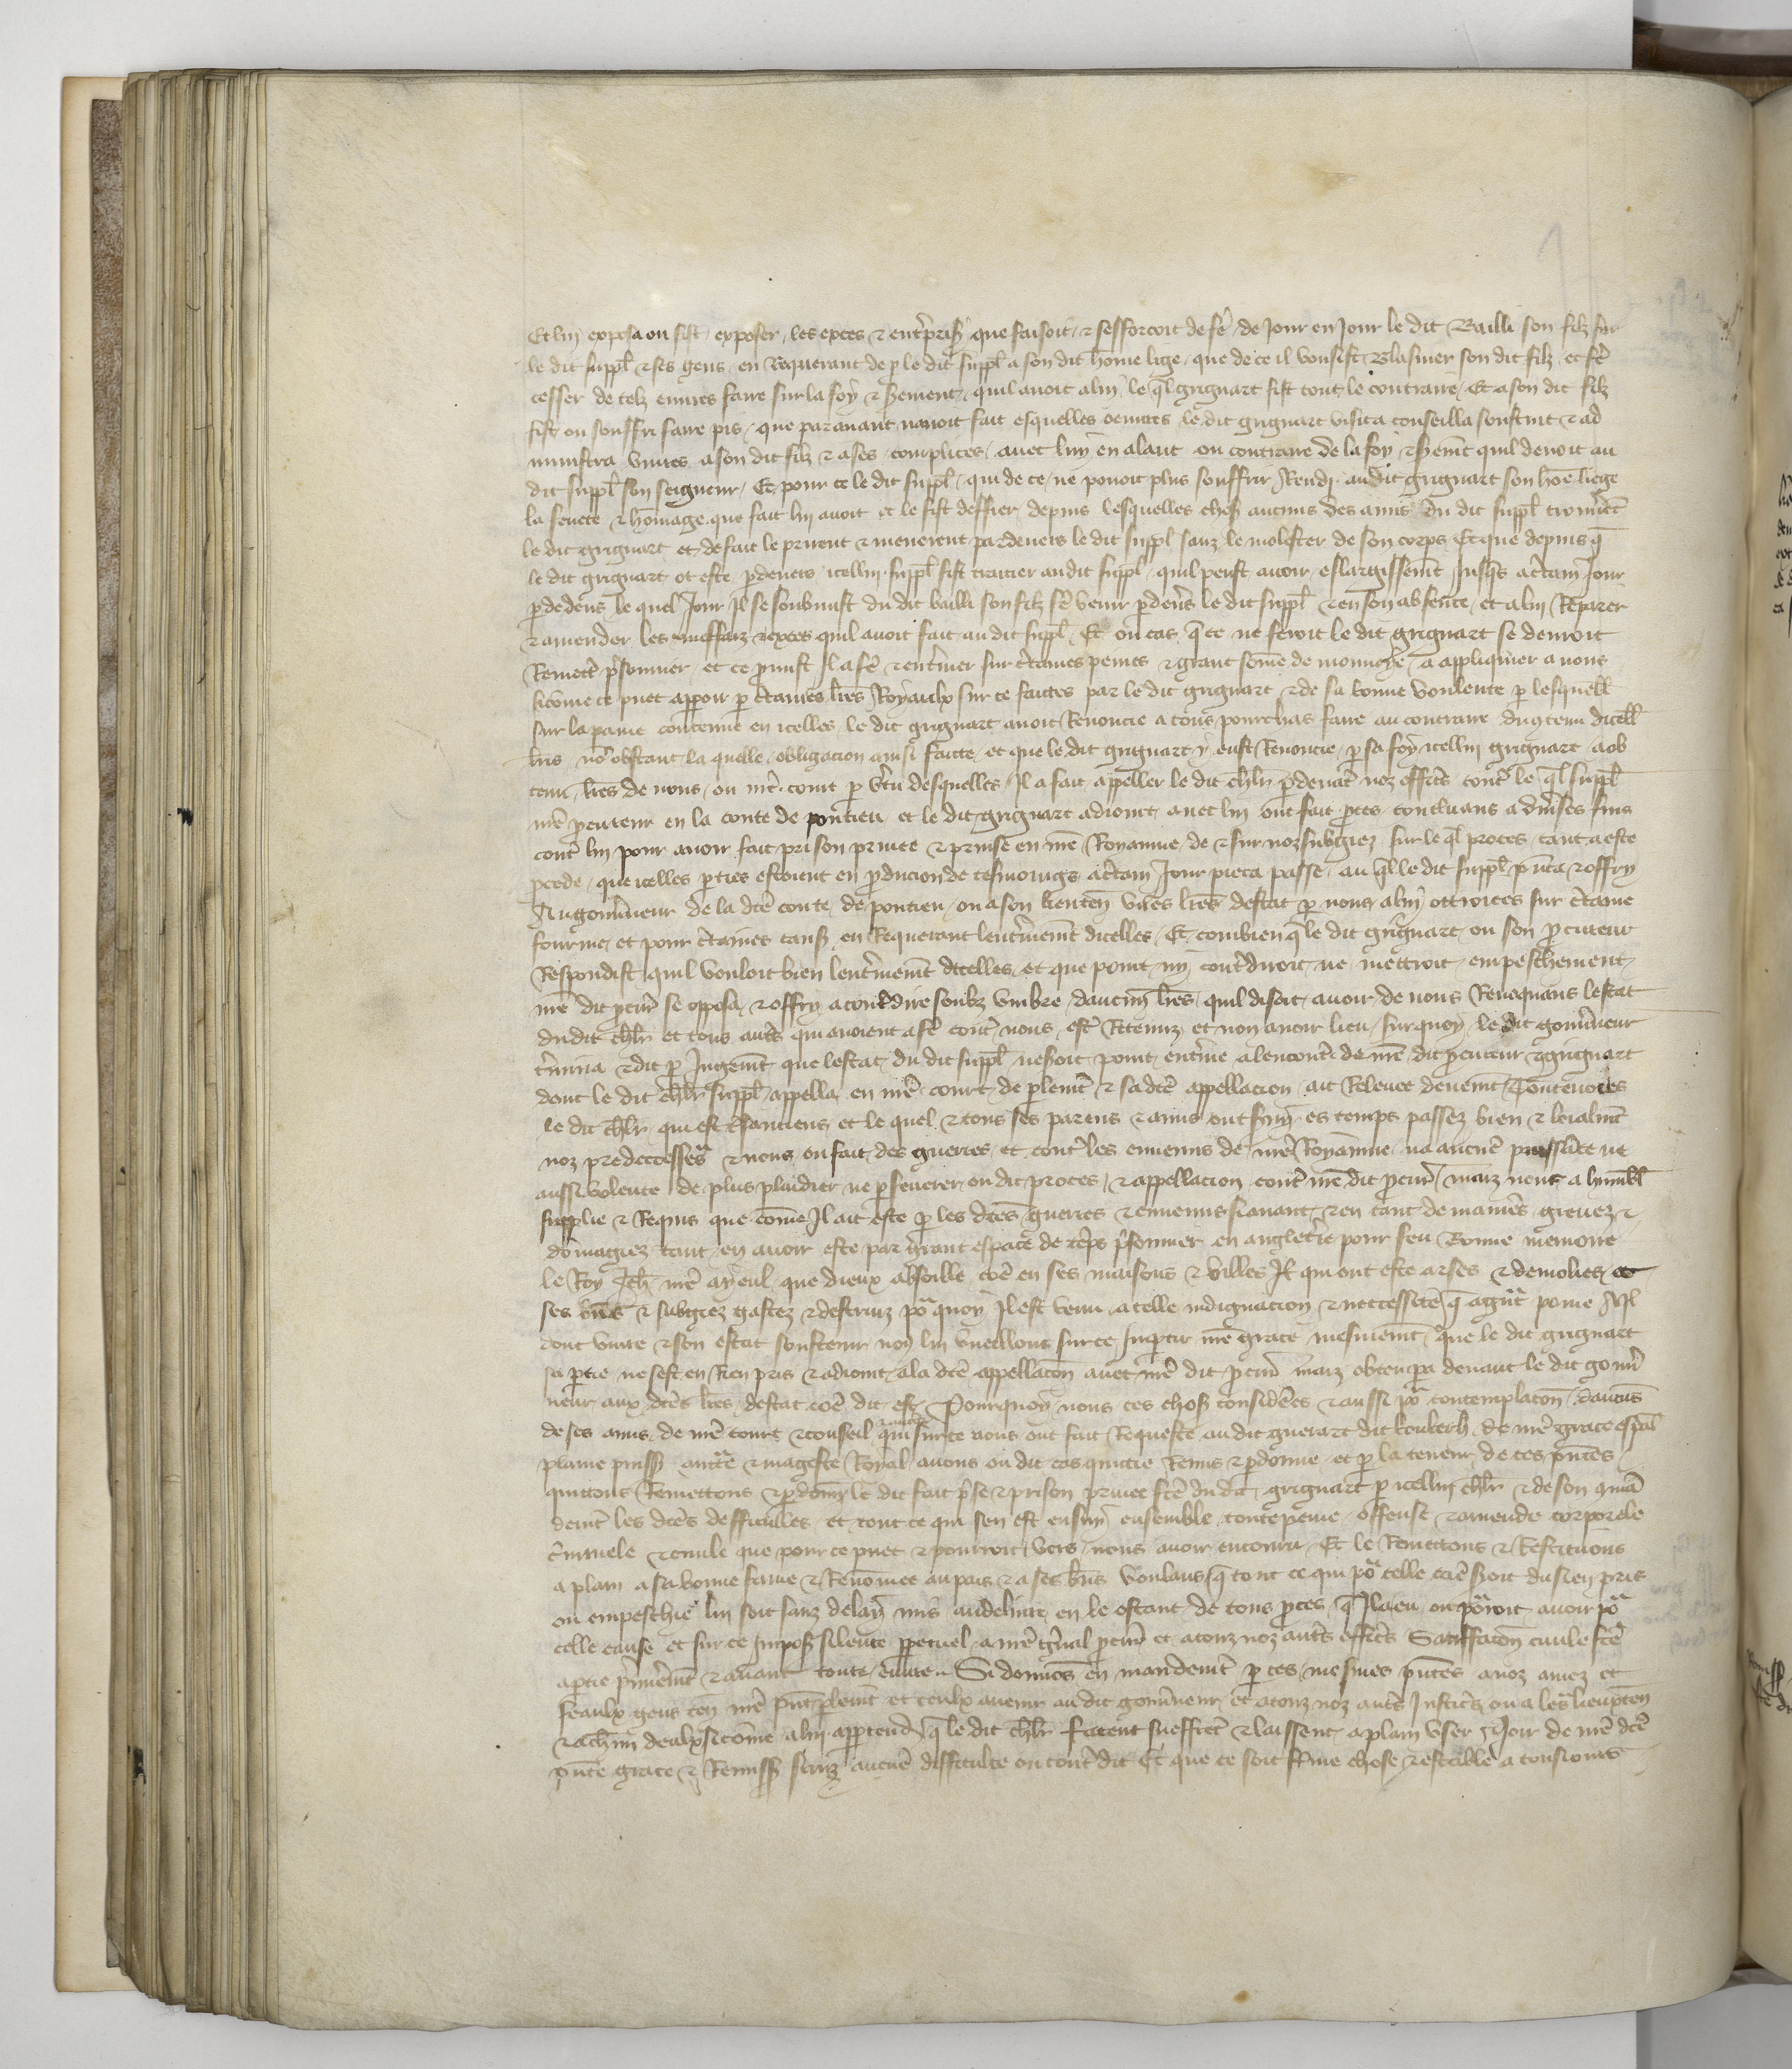 Et lui exposa ou fist exposer les exces & entrepris que faisoit & sefforcoit de fe de Jour en Jour le dit Bailli son filz sur
le dit suppl & ses gens en Requerant de p le dit suppl a son dit home lige que de ce il voulsist blasmer son dit filz et fe
cesser de telz envies faire sur la foy & serement quil avoit a luy le ql griguart fist tout le contraire Et a son dit filz
fist ou souffri faire pis que paravant navoit fait esquelles le dit griguart visita conseilla soustint & ad
ministra vivres a son dit filz & a ses complices avec luy en alant ou contraire de la foy & serent quil devoit au
dit suppl son seigneur Et pour ce le dit suppl qui de ce ne povoit plus souffrir Rendi au dit griguart son hoe liege
la feuete & homage que fait lui avoit et le fist deffier depuis lesquelles choses aucuns des amis du dit suppl trouverent
le dit griguart et de fait le prirent & menerent pardevers le dit suppl sanz le molester de son corps Et que depuis q
le dit griguart ot este pdevers icellui suppl fist traitier au dit suppl quil peust avoir eslargissement Jusqs a ctain Jour
pdedens le quel Jour Il se soubmist du dit bailli son filz fe venir pdevers le dit suppl & en son absence et a lui Reparer
& amender les meffaiz & exces quil avoit fait au dit suppl Et ou cas q ce ne feroit le dit griguart se devroit
Remett prisonnier et ce promist Il a fe & enteriner sur ctaines peines & grant some de monnoye a appliquier a nous
sicome ce puet apparoir p ctaines lres Royaulx sur ce faittes par le dit griguart & de sa bonne voulente p lesquell
sur la paine contenue en icelles le dit griguart avoit Renoncie a tous pourchas faire au contraire du contenu dicell
lres no obstant la quelle obligacion ainsi faitte et que le dit griguart y eust Renoncie p sa foy icellui griguart a ob
tenu lres de nous ou nre court p vtu desquelles Il a fait appeller le dit chlr pdevant noz officrs contre le ql suppl
nre pcureur en la conte de pontieu et le dit griguart adioinct avec lui ont fait pces concluans a divses fins
contre lui pour avoir fait prison privee & prinse en nre Royaume de & sur noz subgiez sur le ql proces tant a este
pcede que icelles pties estoient en pduction de tesmoings a ctain Jour pieca passe au ql le dit suppl pnta & offry
Au gouvneur de la dte conte de pontieu ou a son lieuten unes lres destat p nous a luy ottroiees sur ctaine
fourme et pour ctaines causes en Requerant lenterinement dicelles Et combien q le dit griguart ou son pcureur
Respondist quil vouloit bien lenterinement dicelles et que point ny contrediroit ne mettroit empeschement
nre dit pcur se opposa & offry a contredire soubz umbre daucuns lres quil disoit avoir de nous Revoquans lestat
du dit chlr et tous autres qui avoient a fe contre nous est Retenuz et non avoir lieu surquoy le dit gouvneur
tmina & dit p Jugement que lestat du dit suppl ne soit point entine a lencontre de nre dit pcureur & griguart
dont le dit chlr suppl appella en nre court de plement & sa dte appellacion ait Relevee deuement Toutevoies
le dit chlr qui est anciens et le quel & tous ses parens & amis ont suy es temps passez bien & loialment
noz predecesseurs & nous ou fait des guerres et contre les ennemis de nre Royaume na aucune puissance ne
aussi volente de plus plaidier ne pseverer ou dit proces & appellacion contre nre dit pcur maiz nous a humbl
supplie & Requis que come Il ait este p les dtes guerres & ennemis sicavant & en tant de manieres grevez &
domagiez tant en avoir este par grant espace de teps psonnier en angleterre pour feu Bonne memoire
le Roy Jeh nre ayeul que dieux absoille coe en ses maisons & villes qui ont este arses & demolies et
ses biens & subgiez gastez & destruiz po quoy Il est venu a telle indignacion & neccessite q a grant poine a Il
dont vivre & son estat soustenir nous lui vueillons sur ce Impartir nre grace mesmement que le dit griguart
sa ptie ne sest en Rien pris & adioint a la dte appellacon avec nre dit pcur maiz obtempa devant le dit gouv
neur aux dtes lres destat coe dit est Pourquoy nous ces choses considerees & aussi po contemplacon daucuns
de ses amis de nre court & conseil qui sur ce nous ont fait Requeste au dit guerart dit de nre grace espal
plaine puiss auctorite & mageste Royal avons ou dit cas quittie Remis & pdonne et p la teneur de ces pntes
quittons Remettons & pdonns le dit fait pse & prison privee fte du dit griguart p icellui chlr & de son
dement les dtes desficulles et tout ce qui sen est ensuy ensemble toute peine offense & amende corporele
crimele & civile que pour ce puet & pourroit vers nous avoir encouru Et le Remettons & Restituons
a plain a sa bonne fame & Renomee au pais & a ses biens voulans q tout ce qui po telle cause soit du sien pris
ou empeschie lui soit sanz delay mis au delivre en le ostant de tous pces q Il a eu ou pourroit avoir po
celle cause et sur ce Imposs silence ppetuel a nre gnal pcur et a touz noz autres officrs Satisfacon civile fte
a ptie pmement & avant toute euvre Si donnons en mandement p ces mesmes pntes a noz amez et
feaulx gens ten nre pnt plement et ceulx avenir au dit gouvneur et a touz noz autres Justiciers ou a leurs lieuxten
& a chun deulx sicome a lui apptend q le dit chlr facent sueffrent & laissent a plain user & Joir de nre dte
pnte grace & Remiss sanz aucune difficulte ou contredit Et que ce soit ferme chose & estable a tousiours